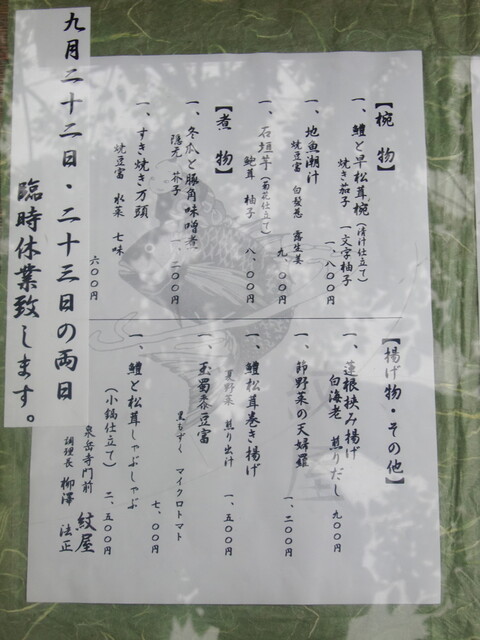 【椀物】
一、鱧と早松茸椀（清汁仕立て）
焼き茄子　一文字柚子
一、八〇〇円
一、地魚潮汁
焼豆富　白髪葱　露生姜
九〇〇円
一、石垣芋（菊花仕立て）
鮑茸　柚子
八〇〇円
【煮物】
一、冬瓜と豚角味噌煮
隠元　芥子
一、二〇〇円
一、すき焼き万頭
焼豆富　水菜　七味
六〇〇円
【揚げ物・その他】
一、蓮根挟み揚げ
白海老　煎りだし
九〇〇円
一、節野菜の天婦羅
一、二〇〇円
一、鱧松茸巻き揚げ
夏野菜　煎り出汁
一、五〇〇円
一、玉蜀黍豆富
黒もずく　マイクロトマト
七〇〇円
一、鱧と松茸しゃぶしゃぶ
（小鍋仕立て）二、五〇〇円
泉岳寺門前　紋屋
調理長　柳澤　法正
九月二十二日・二十三日の両日
臨時休業致します。